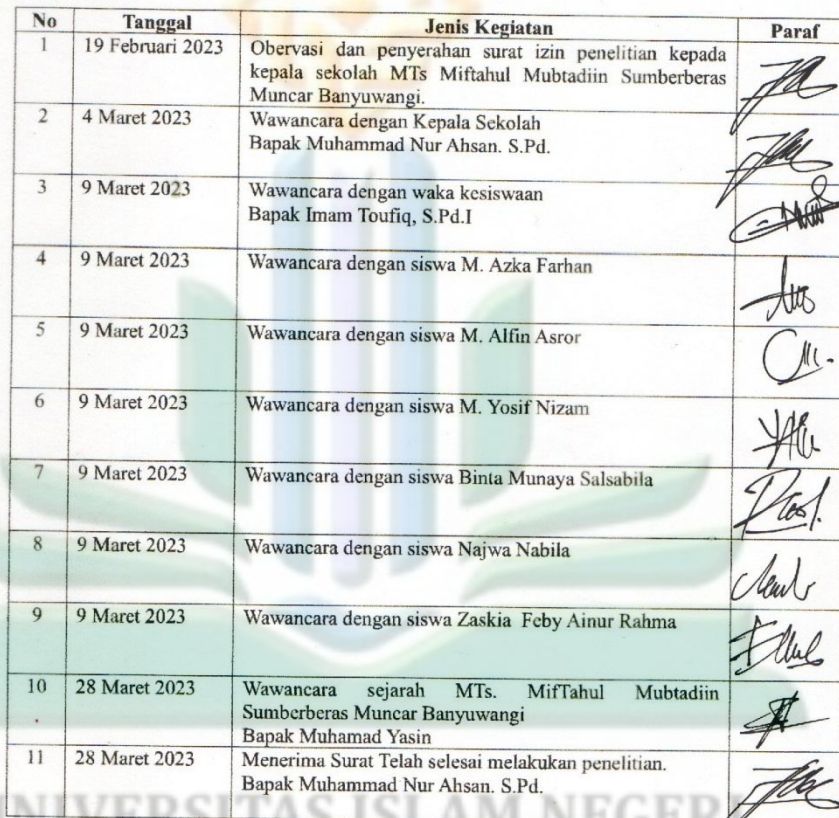 No Tanggal Jenis Kegiatan Paraf
1 19 Februari 2023 Obervasi dan penyerahan surat izin penelitian kepada
kepala sekolah MTs Miftahul Mubtadiin Sumberberas
Muncar Banyuwangi.
2 4 Maret 2023 Wawancara dengan Kepala Sekolah
Bapak Muhammad Nur Ahsan. S.Pd.
3 9 Maret 2023 Wawancara dengan waka kesiswaan
Bapak Imam Toufiq, S.Pd.I
4 9 Maret 2023 Wawancara dengan siswa M. Azka Farhan
5 9 Maret 2023 Wawancara dengan siswa M. Alfin Asror
6 9 Maret 2023 Wawancara dengan siswa M. Yosif Nizam
7 9 Maret 2023 Wawancara dengan siswa Binta Munaya Salsabila
8 9 Maret 2023 Wawancara dengan siswa Najwa Nabila
9 9 Maret 2023 Wawancara dengan siswa Zaskia Feby Ainur Rahma
10 28 Maret 2023 Wawancara sejarah MTs. MifTahul Mubtadiin
Sumberberas Muncar Banyuwangi
Bapak Muhamad Yasin
11 28 Maret 2023 Menerima Surat Telah selesai melakukan penelitian.
Bapak Muhammad Nur Ahsan. S.Pd.
UNIVERSITAS ISLAM NEGERI